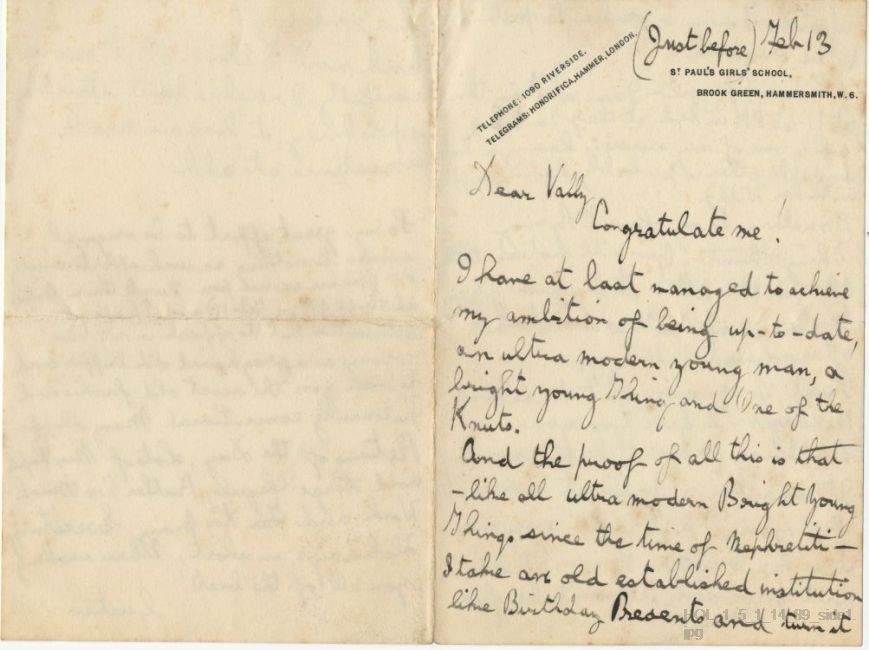 (Just before) Feb 13
ST PAUL'S GIRLS' SCHOOL,
BROOK GREEN, HAMMERSMITH, W. 6.
TELEPHONE: 1090 RIVERSIDE.
TELEGRAMS: HONORIFICA, HAMMER, LONDON.
Dear Vally
Congratulate me!
I have at last managed to achieve
my ambition of being up-to-date,
an ultra modern young man, a
bright young Thing and One of the
Knuts.
And the proof of all this is that
-like all ultra modern Bright Young
Things since the time of Nephretiti-
I take an old established institution
like Birthday Presents and turn it
HOL_1_5_1_14_89_side1.
jpg